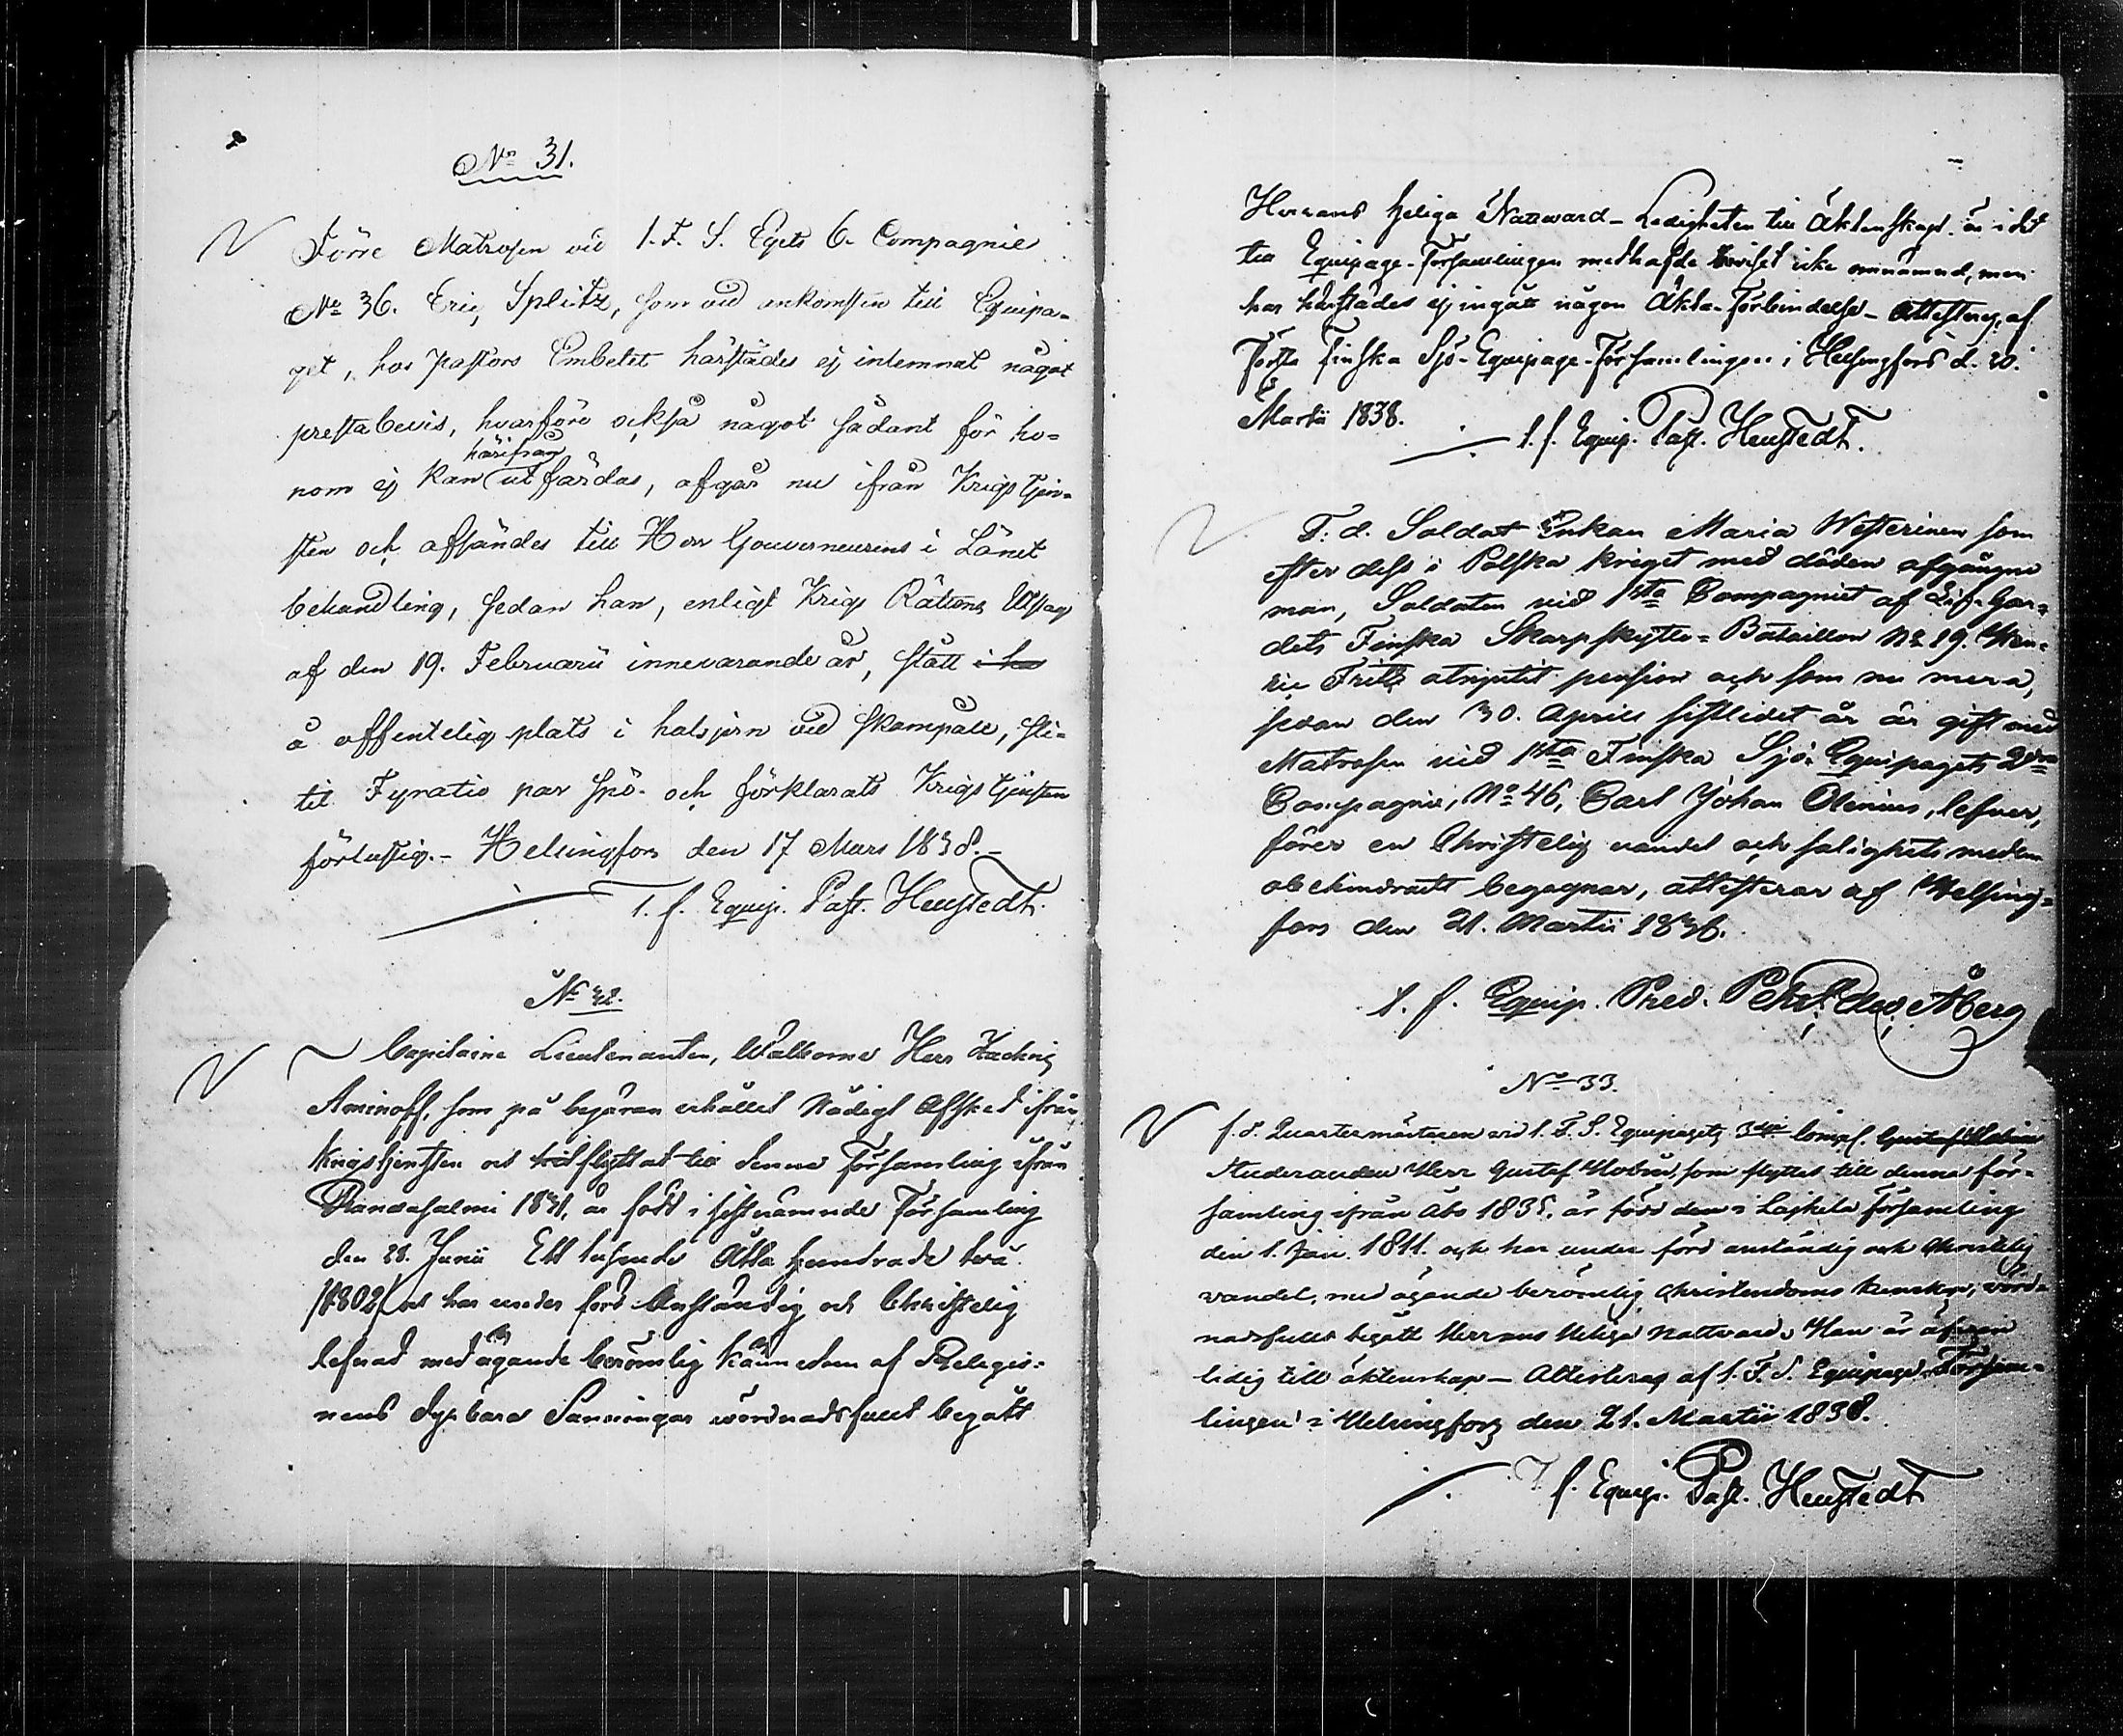 No 31.
Förre Matrosen vid 1. F. S. Eqets 6. Compagnie
No 36. Eric Splitz, som vid ankomsten till Equipa-
get, hos Pastors Embetet härstädes ej inlemnat något
prestabevis, hvarföre också något sådant för ho-
härifrån
nom ej kan utfärdas, afgår nu ifrån Krigstjen-
sten och afsändes till Herr Gouverneurens i Länet
behandling, sedan han, enligt Krigs Rättens Utslag
af den 19. Februarii innevarande år, stått i ha
å offentelig plats i halsjern vid skampåle, sli-
tit Fyratio par spö- och förklarats Krigstjensten
förlustig.- Helsingfors den 17 Mars 1838.-
T. f. Equip. Past. Heustedt.
No 32.
Capitaine Lieutenanten, Wälborne Herr
Aminoff, som på begäran erhållit Nådigt Afsked ifrån
Krigstjensten och tillflyttat till denna Församling ifrån
Randasalmi 1831, är född i sistnämnde Församling
den 28. Junii Ett tusende Åtta hundrade två
/1802/ och har under förd Anständig och Christelig
lefnad med ägande berömlig kännedom af Religio-
nens dyrbara Sanningar wördnadsfullt begått
Herrans heliga Nattward - Ledigheten till Äktenskap är i det
till Equipage-Församlingen medhafde beviset icke omnämnd, men
har härstädes ej ingått någon Äkta-Förbindelse - Attesteras af
Första Finska Sjö-Equipage-Församlingen i Helsingfors d. 20.
Martii 1838.
T. f. Equip. Past. Heustedt.
F. d. Soldat Enkan Maria Westerinen som
efter dess i Pålska kriget med döden afgångne
man, Soldaten vid 1sta Compagniet af Lif-Gar-
dets Finska Skarpskytte-Bataillon No 19. Hen-
ric Frits åtnjutit pension och som nu mera,
sedan den 30. Aprill sistlidet år är gift med
Matrosen vid 1sta Finska Sjö-Equipagets 2dra
Compagnie, No 46, Carl Johan Olenius, lefver,
förer en Christelig vandel och salighets medlen
obehindradt begagnar, attesterar af Helsing-
fors den 21. Martii 1838.
t. f. Equip. Pred. Åberg
No 33.
f. d. Quartermästaren vid 1. F. S. Equipagets 3dje Comp.
Studeranden Herr Gustaf, som flyttat till denna för-
samling ifrån Åbo 1835. är född i församling
den 1. Jan. 1811. och har under förd anständig och Christelig
vandel, med ägande berömlig Christendoms kunskap, vörd-
nadsfullt begått Herrans Heliga Nattvard. Han är äfven
ledig till äktenskap - Attesteras af 1. F. S. Equipage-Försam-
lingen i Helsingfors den 21. Martii 1838.
T. f. Equip. Past. Heustedt